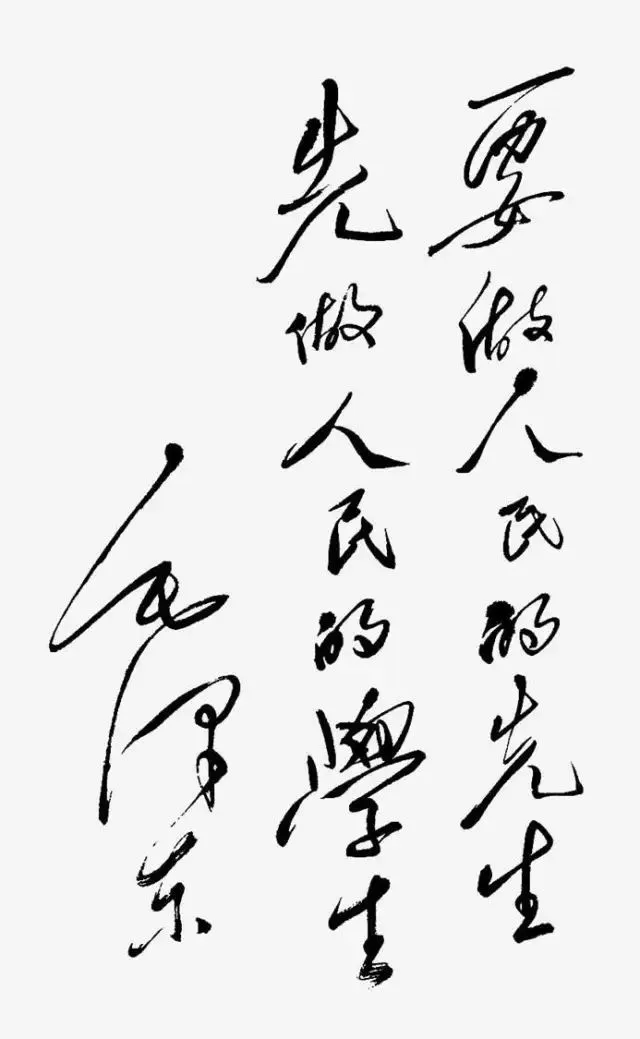 要做人民的先生
先做人民的學生
毛泽东